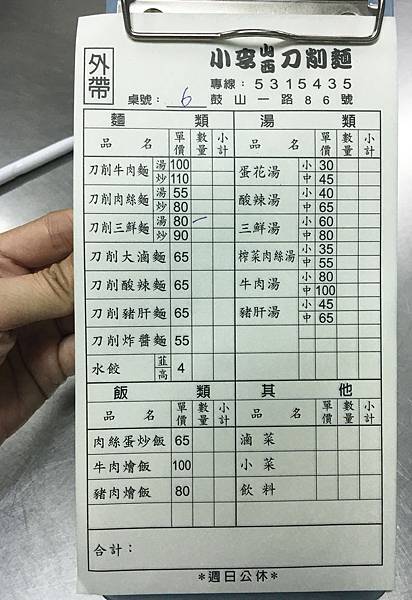 外帶
小李山西刀削麵
專線：5315435
桌號：6 鼓山一路86號
麵 類 湯 類
品 名 單價 數量 小計 品 名 單價 數量 小計
刀削牛肉麵 湯 100 炒 110
蛋花湯 小 30 中 45
刀削肉絲麵 湯 55 炒 80
酸辣湯 小 40 中 65
刀削三鮮麵 湯 80 一 炒 90
三鮮湯 小 60 中 80
刀削大滷麵 65
榨菜肉絲湯 小 35 中 55
刀削酸辣麵 65
牛肉湯 小 80 中 100
刀削豬肝麵 65
豬肝湯 小 45 中 65
刀削炸醬麵 55
水餃 韮 高 4
飯 類 其 他
品 名 單價 數量 小計 品 名 單價 數量 小計
肉絲蛋炒飯 65 滷菜
牛肉燴飯 100 小菜
豬肉燴飯 80 飲料
合計：
*週日公休*